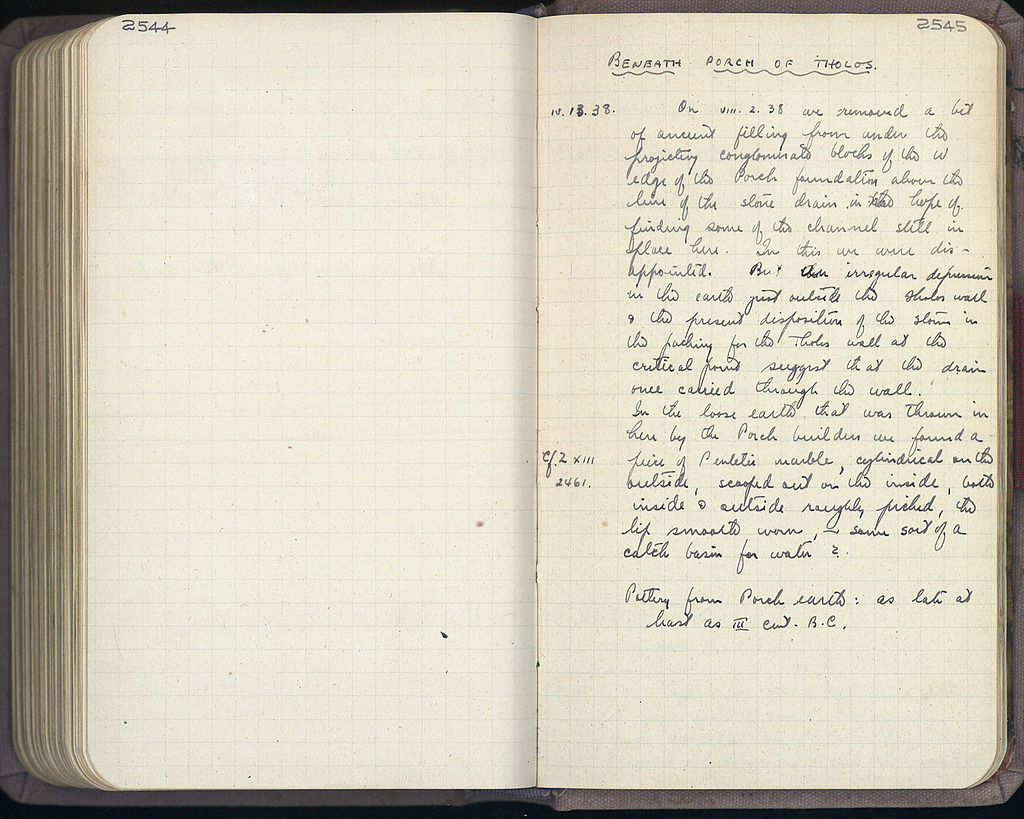 2544
2545
BENEATH PORCH OF THOLOS.
IV. 13. 38. On VIII. 2. 38 we removed a bit
of ancient filling from under the
projecting conglomerate blocks of the W
edge of the Porch foundation above the
line of the stone drain in the hope of
finding some of the channel still in
place here. In this we were dis-
appointed. But an irregular depression
in the earth just outside the Tholos wall
& the present disposition of the stones in
the packing for the Tholos wall at the
critical point suggest that the drain
once carried through the wall.
In the loose earth that was thrown in
here by the Porch builders we found a
Cf. Z XIII piece of Pentelic marble, cylindrical on the
2461. outside, scooped out on the inside, both
inside & outside roughly picked, the
lip smooth worn, – some sort of a
catch basin for water?
Pottery from Porch earth: as late at
least as III cent. B.C.